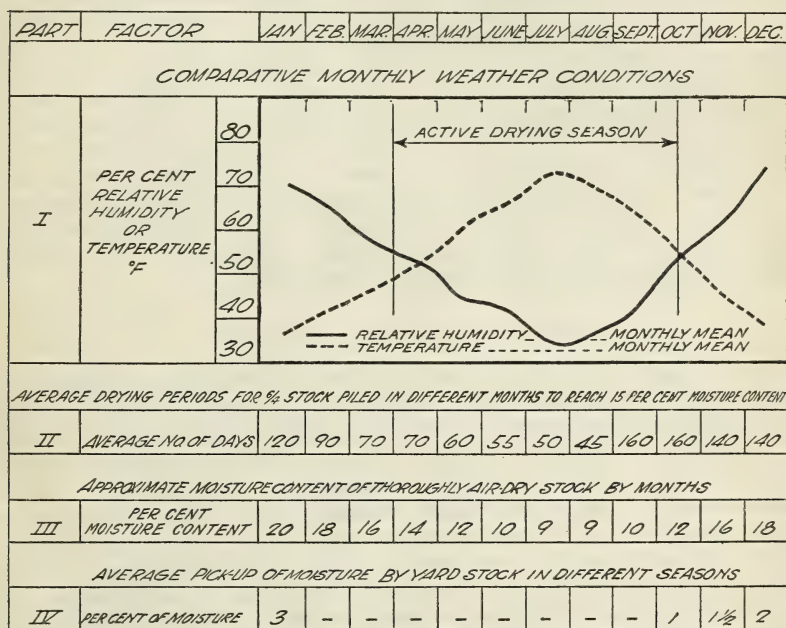 PART FACTOR JAN FEB. MAR. APR. MAY JUNE JULY AUG SEPT. OCT NOV. DEC.
COMPARATIVE MONTHLY WEATHER CONDITIONS
I
PER CENT
RELATIVE
HUMIDITY
OR
TEMPERATURE
°F
80
70
60
50
40
30
ACTIVE DRYING SEASON
RELATIVE HUMIDITY MONTHLY MEAN
TEMPERATURE MONTHLY MEAN
AVERAGE DRYING PERIODS FOR STOCK PILED IN DIFFERENT MONTHS TO REACH 15 PER CENT MOISTURE CONTENT
II AVERAGE NO. OF DAYS 120 90 70 70 60 55 50 45 160 160 140 140
APPROXIMATE MOISTURE CONTENT OF THOROUGHLY AIR-DRY STOCK BY MONTHS
III PER CENT
MOISTURE CONTENT 20 18 16 14 12 10 9 9 10 12 16 18
AVERAGE PICK-UP OF MOISTURE BY YARD STOCK IN DIFFERENT SEASONS
IV PER CENT OF MOISTURE 3 - - - - - - - - 1 1½ 2